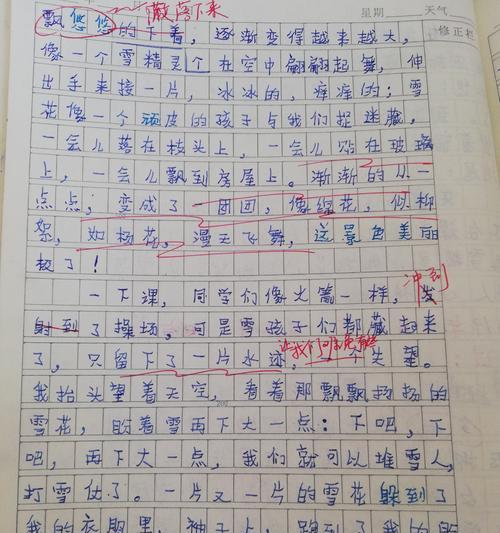 散落下来
星期 天气
飘悠悠的下着，逐渐变得越来越大，
修正栏
像一个雪精灵个在空中翩翩起舞，伸
出手来接一片，冰冰的，痒痒的；雪
花像一个顽皮的孩子与我们捉迷藏，
一会儿落在枝头上，一会儿贴在玻璃
上，一会儿飘到房屋上。渐渐的从一
点点，变成了一团团，像绵花，似柳
絮，如杨花，漫天飞舞，这景色美丽
极了！
冲到
一下课，同学们像火箭一样，发
射到了操场。可是雪孩子们都藏起来
让我们
了，只留下了一片水迹，个失望。
我抬头望着天空，看着那飘飘扬扬的
雪花，盼着雪再下大一点：下吧，下
吧，再下大一点，我们就可以堆雪人，
打雪仗了。一片又一片的雪花躲到了
我的衣服里，袖子上，跑到了我的